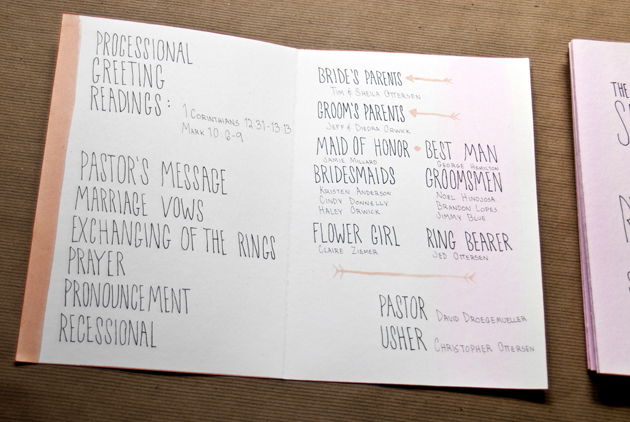 PROCESSIONAL
GREETING
READINGS:
1 CORINTHIANS 12:31-13:13
MARK 10:6-9
PASTOR'S MESSAGE
MARRIAGE VOWS
EXCHANGING OF THE RINGS
PRAYER
PRONOUNCEMENT
RECESSIONAL
BRIDE'S PARENTS
TIM & SHEILA OTTERSEN
GROOM'S PARENTS
JEFF & DIEDRA ORWICK
MAID OF HONOR
JAMIE MILLARD
BEST MAN
GEORGE HAMILTON
BRIDESMAIDS
KRISTEN ANDERSON
CINDY DONNELLY
HALEY ORWICK
GROOMSMEN
NOEL HINOJOSA
BRANDON LOPES
JIMMY BLUE
FLOWER GIRL
CLAIRE ZIEMER
RING BEARER
JED OTTERSEN
PASTOR DAVID DROEGEMUELLER
USHER CHRISTOPHER OTTERSEN
THE